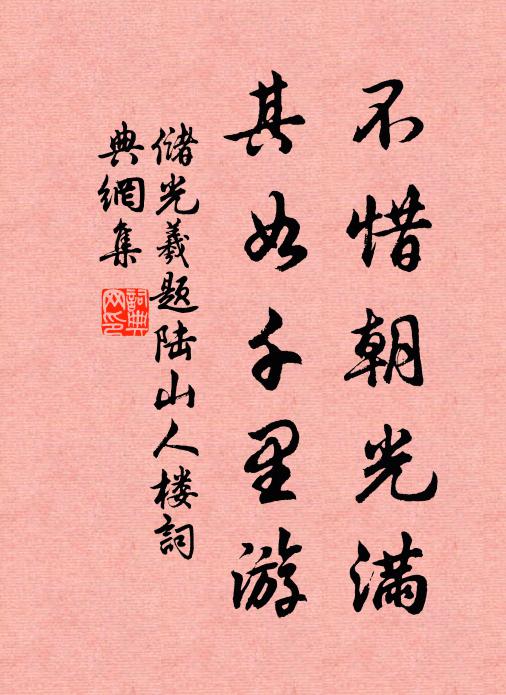 不惜朝光满
其如千里游
储光羲题陆山人楼词
典網集
詞典网印